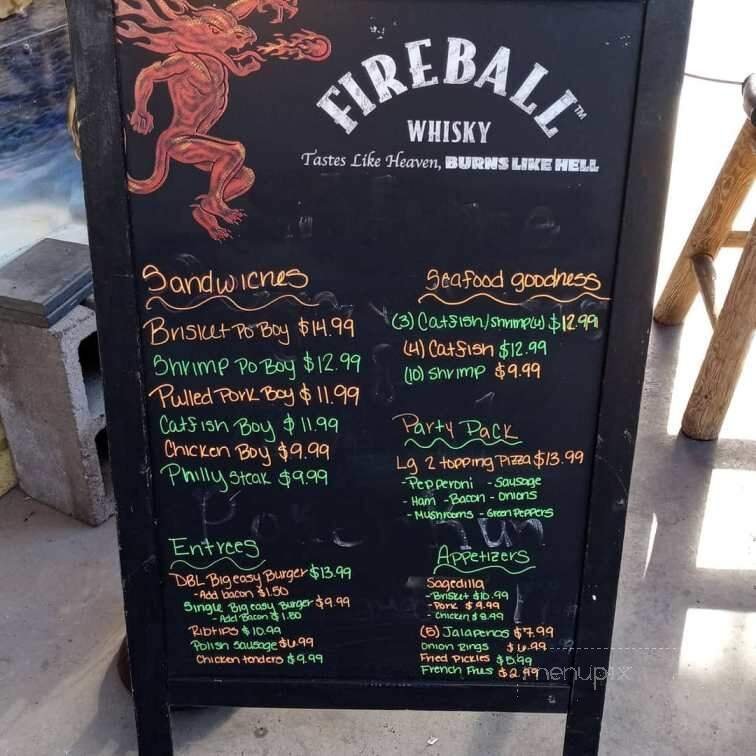 FIREBALL™
WHISKY
Tastes Like Heaven, BURNS LIKE HELL
Sandwiches
Brisket Po Boy $14.99
Shrimp Po Boy $12.99
Pulled Pork Boy $11.99
Catfish Boy $11.99
Chicken Boy $9.99
Philly Steak $9.99
Seafood goodness
(3) Catfish/Shrimp(4) $12.99
(4) Catfish $12.99
(10) Shrimp $9.99
Party Pack
Lg 2 topping Pizza $13.99
-Pepperoni -Sausage
-Ham -Bacon -Onions
-Mushrooms -Green Peppers
Entrees
DBL Big easy Burger $13.99
-Add bacon $1.50
Single Big easy Burger $9.99
-Add Bacon $1.50
Rib tips $10.99
Polish Sausage $6.99
Chicken tenders $9.99
Appetizers
Sagedilla
-Brisket $10.99
-Pork $9.99
-Chicken $8.99
(5) Jalapenos $7.99
Onion Rings $6.99
Fried Pickles $5.99
French Fries $2.99
menupix